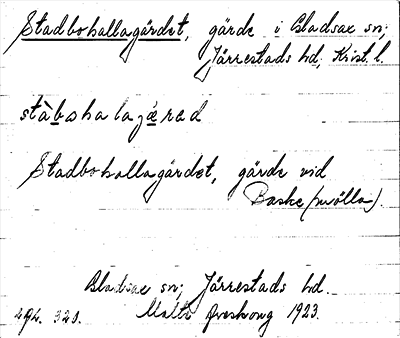 Stadbohallagärdet, gärde i Gladsax sn;
Järrestads hd, Krist. l.
stàbshalajæred
Stadbohallagärdet, gärde vid
Baske (mölla).
Gladsax sn; Järrestads hd.
320. Malte Areskoug 1923.